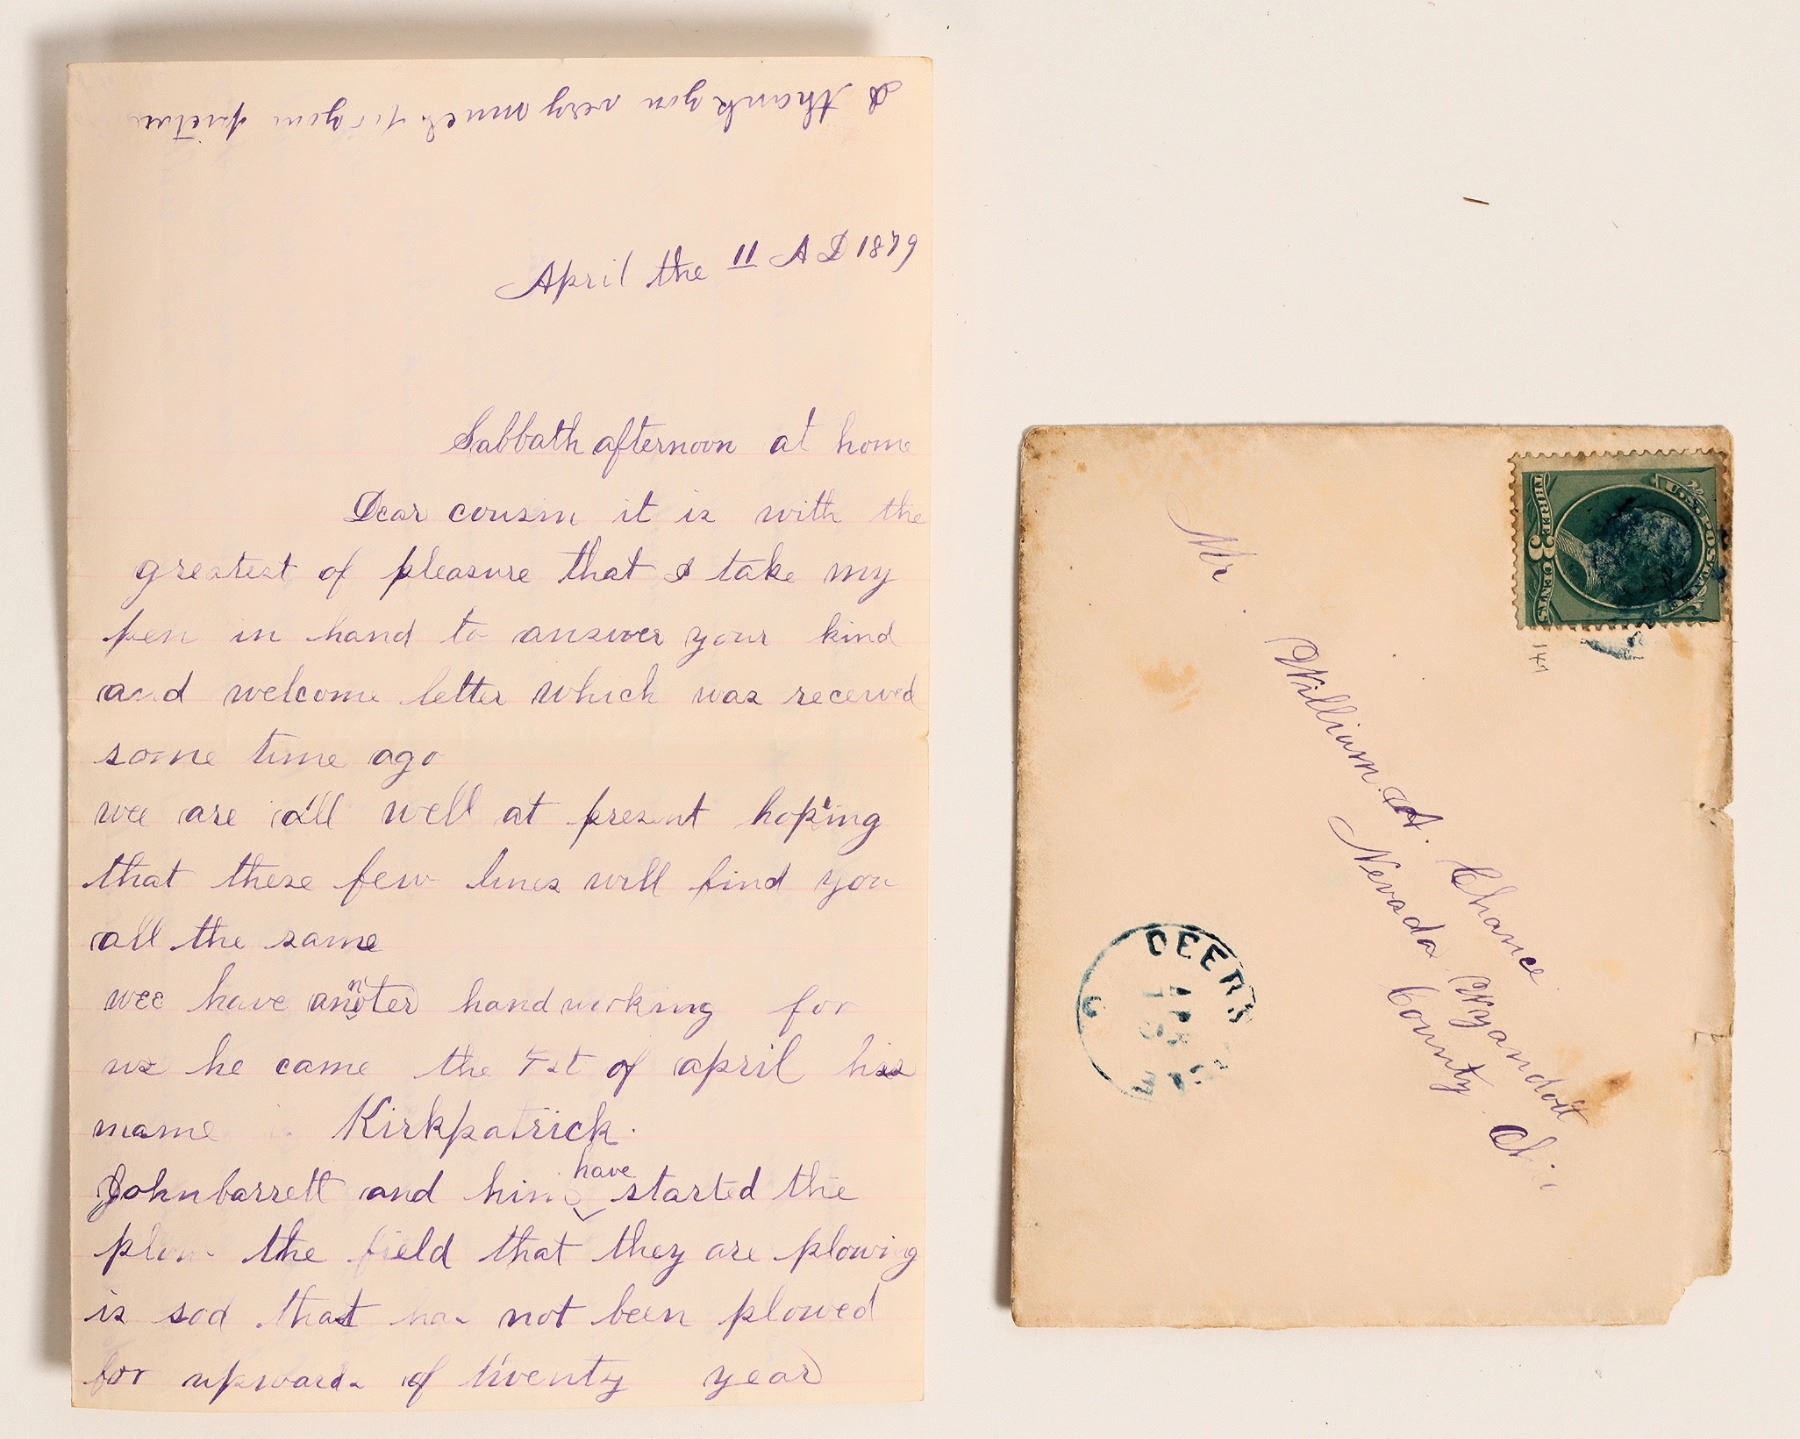 I thank you very much for your picture
April the 11 AD 1879
Sabbath afternoon at home
Dear cousin it is with the
greatest of pleasure that I take my
pen in hand to answer your kind
and welcome letter which was received
some time ago
wee are all well at present hoping
that these few lines will find you
all the same
wee have another hand working for
us he came the 1st of april his
name is Kirkpatrick.
John barrett and him have started the
plow the field that they are plowing
is sod that has not been plowed
for upwards of twenty year
U.S. POSTAGE
THREE 3 CENTS
147
Mr. William A. Chance
Nevada Wyandott
County
DEER
APR